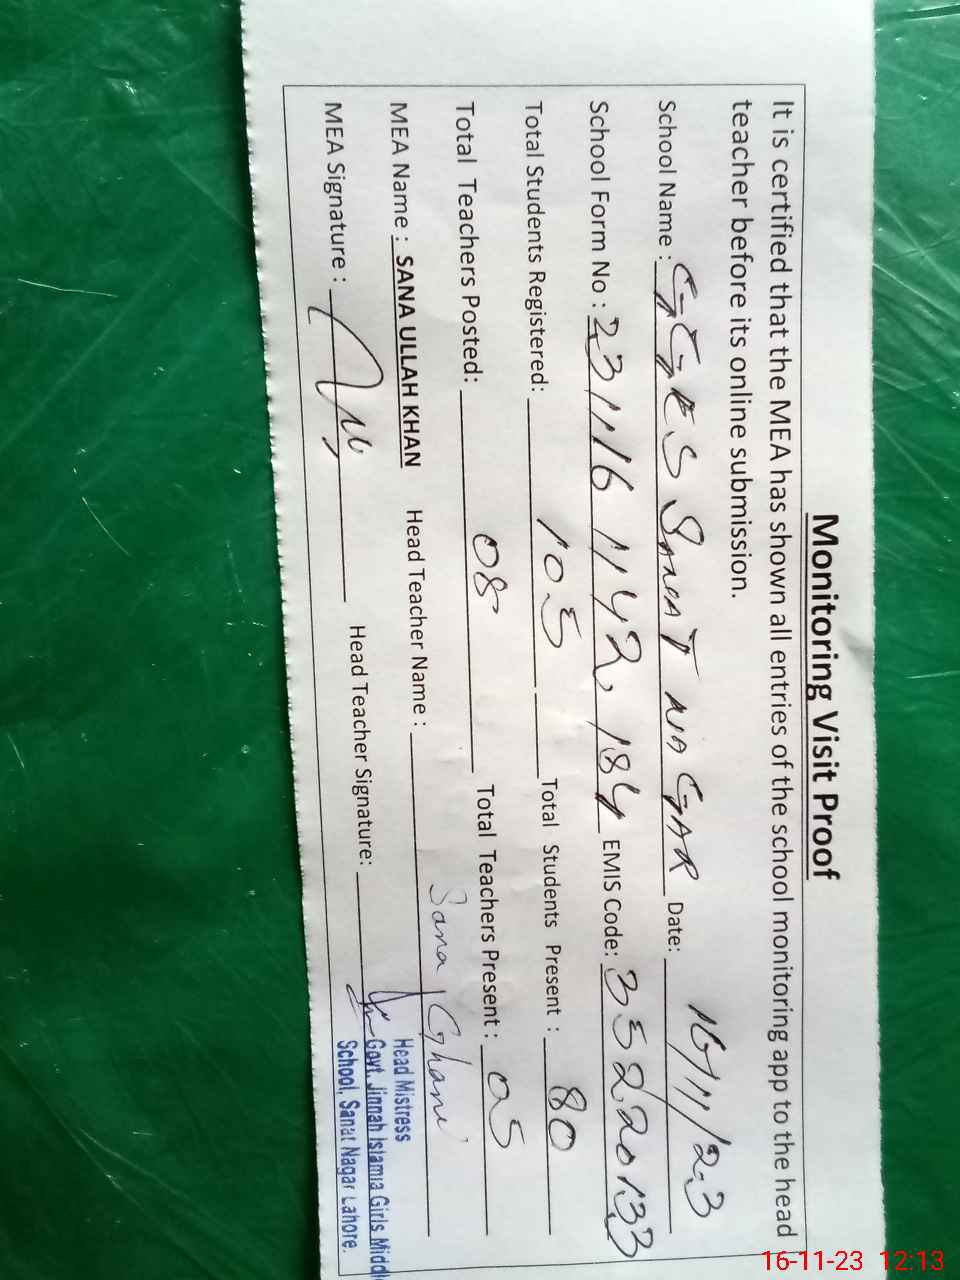 Monitoring Visit Proof
It is certified that the MEA has shown all entries of the school monitoring app to the head
teacher before its online submission.
School Name : GGES SANAT NAGAR Date: 16/11/23
School Form No : 231116 1142, 184 EMIS Code: 35220133
Total Students Registered: 105 Total Students Present : 80
Total Teachers Posted: 08 Total Teachers Present : 05
MEA Name : SANA ULLAH KHAN Head Teacher Name : Sana Ghani
MEA Signature : Head Teacher Signature:
Head Mistress
Govt. Jinnah Islamia Girls Middl
School, Sanat Nagar Lahore.
16-11-23 12:13